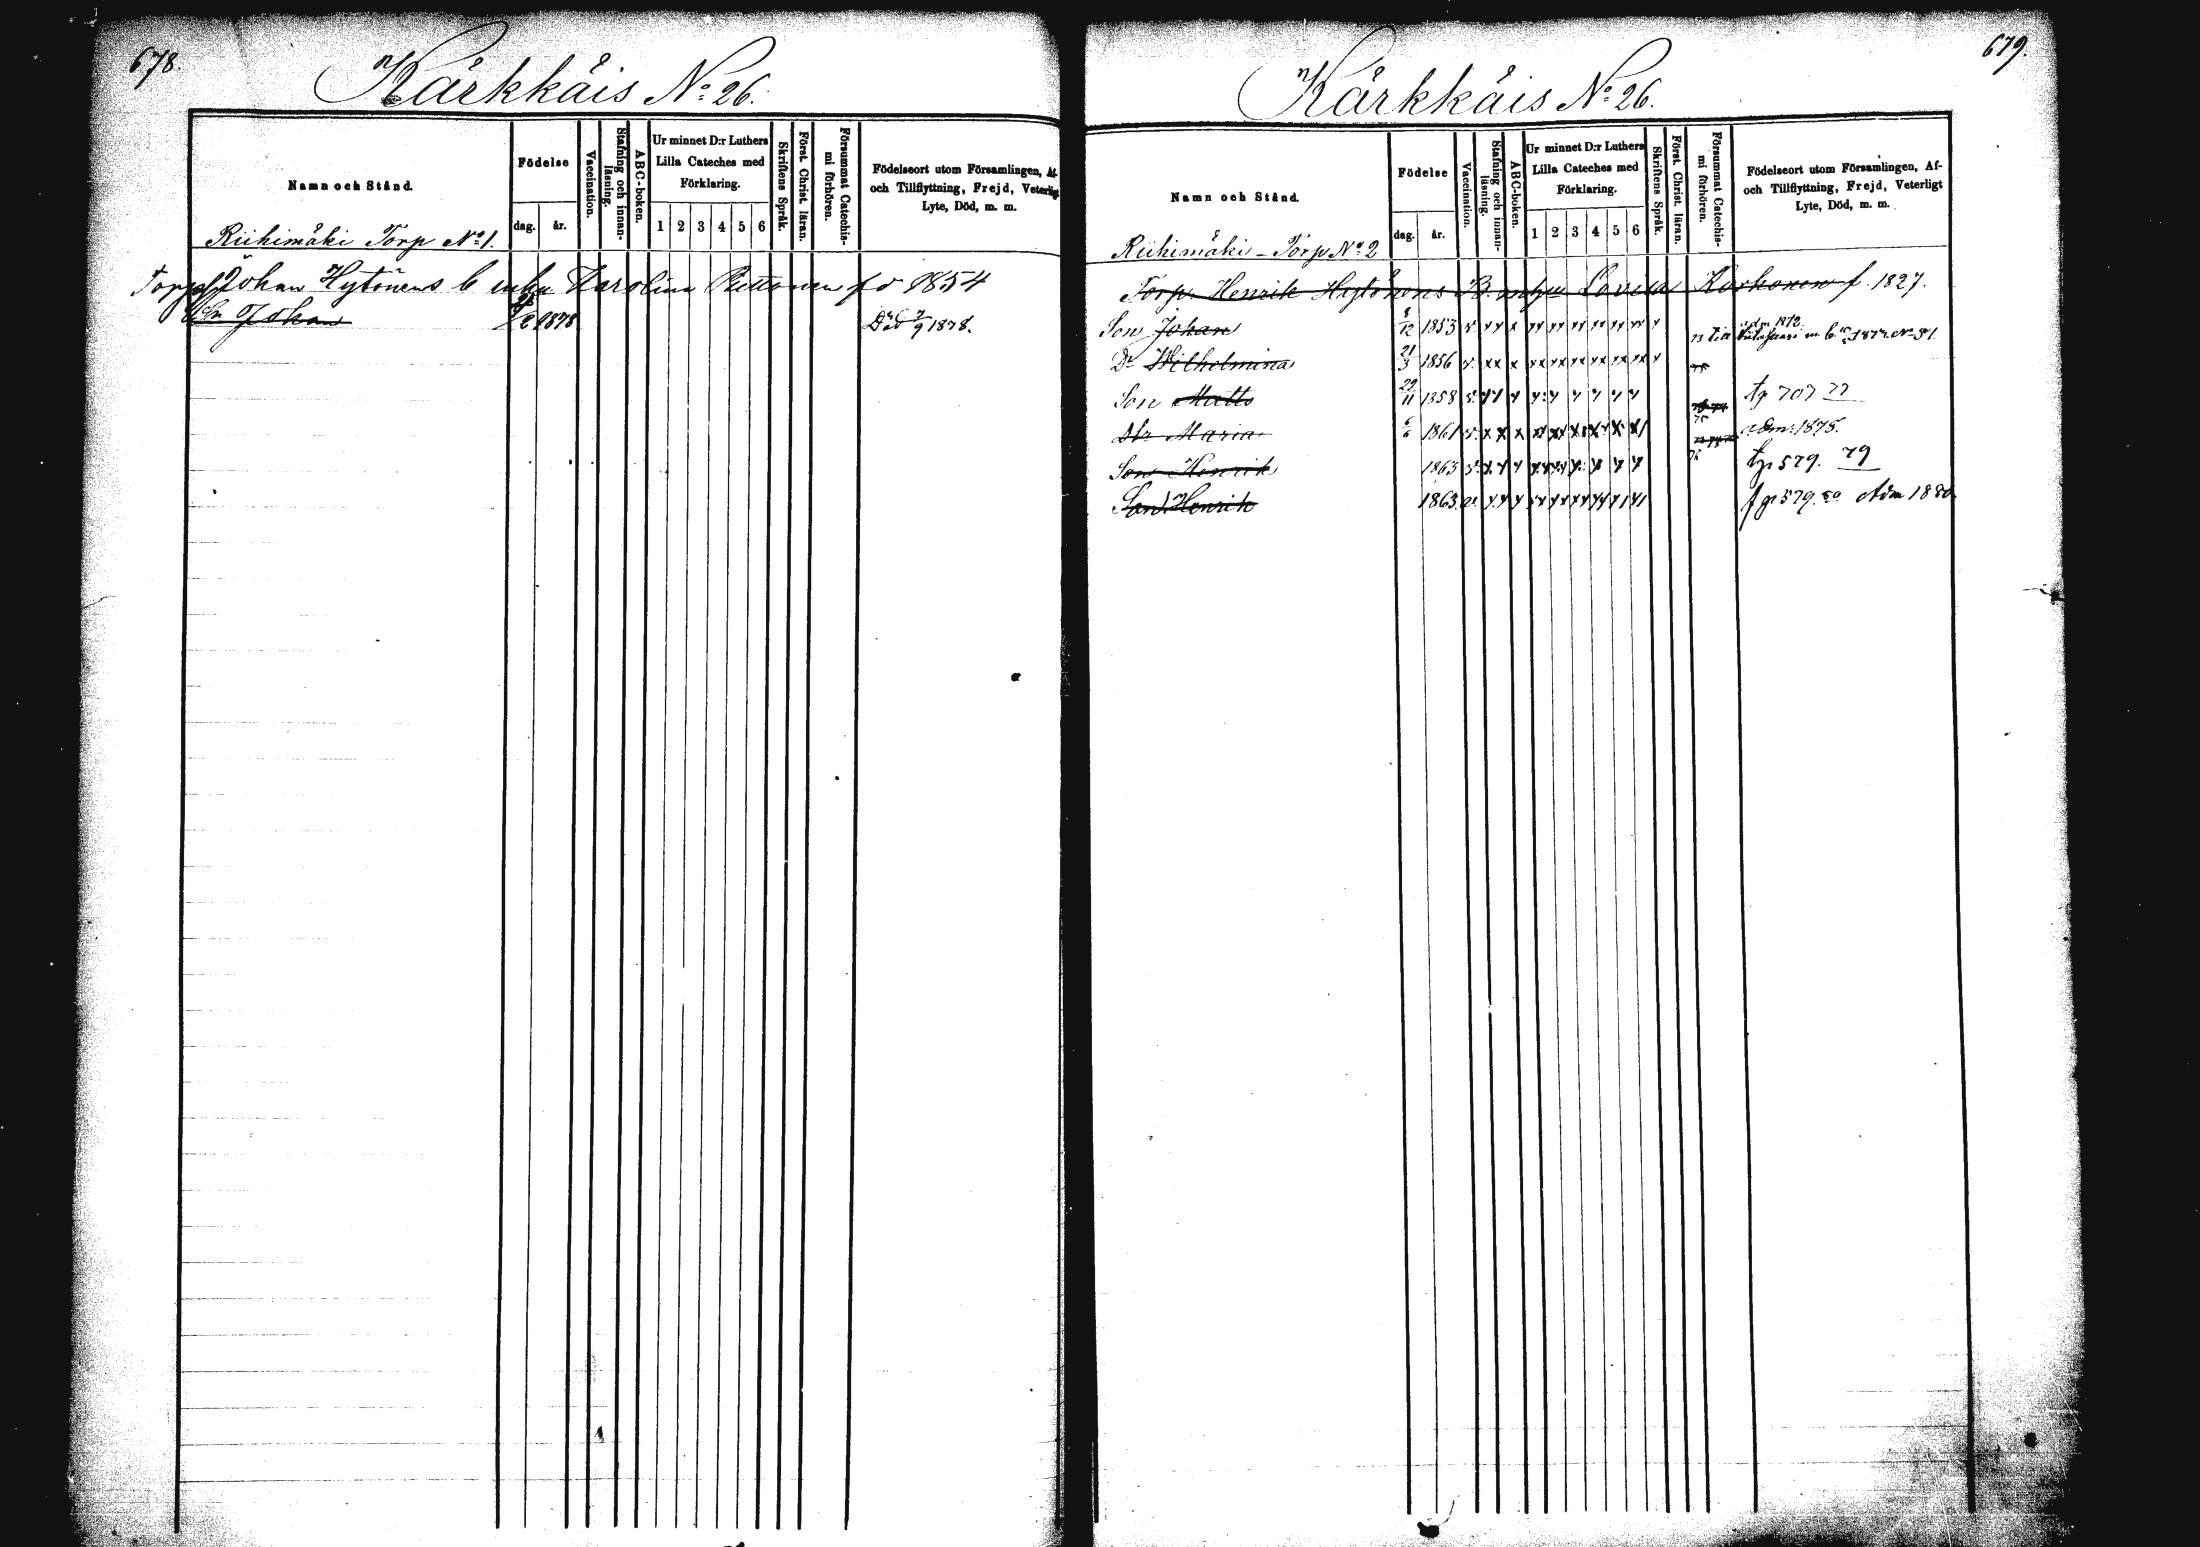 678.
Kärkkäis No: 26.
Namn och Stånd.
Födelse
dag.
år.
Vaccination.
Stafning och innan-
läsning.
ABC-boken.
Ur minnet D:r Luthers
Lilla Cateches med
Förklaring.
1 2 3 4 5 6
Skriftens Språk.
Först. Christ. läran.
Försummat Catechis-
mi förhören.
Födelseort utom Församlingen, Af-
och Tillflyttning, Frejd, Veterligt
Lyte, Död, m. m.
Riihimäki Torp No 1.
Torp Johan Hytönens b enka Karolina fö 1854
Sn Johan 1878 Död 7/9 1878.
679.
Kärkkäis No: 26.
Namn och Stånd.
Födelse
dag.
år.
Vaccination.
Stafning och innan-
läsning.
ABC-boken.
Ur minnet D:r Luthers
Lilla Cateches med
Förklaring.
1 2 3 4 5 6
Skriftens Språk.
Först. Christ. läran.
Försummat Catechis-
mi förhören.
Födelseort utom Församlingen, Af-
och Tillflyttning, Frejd, Veterligt
Lyte, Död, m. m.
Riihimäki - Torp No 2
Torp. Henrik Hytönens Lovisa Korhonen f. 1827.
Son Johan 8/12 1853 adm 1872
Dr Wilhelmina 21/3 1856 75
Son Matts 29/11 1858 tp 707 77
Dtr Maria 6/6 1861 75 adm: 1875.
Son Henrik 1863 tp 579. 79
Son Henrik 1863 f p 579. 80 Adm 1880